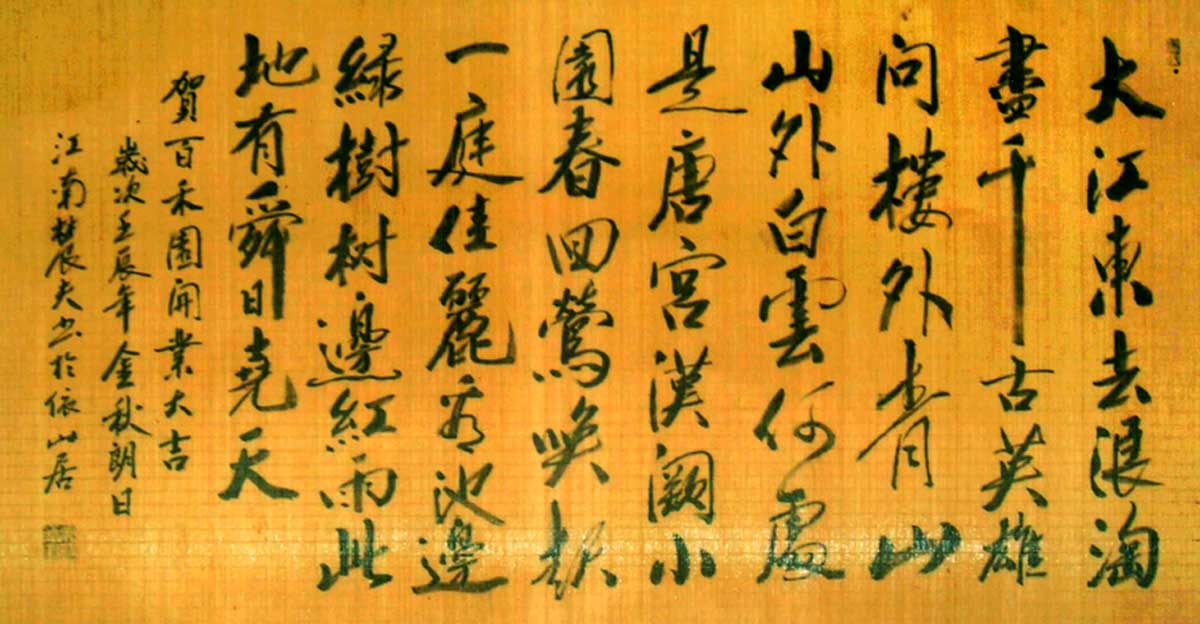 大江東去浪淘
盡千古英雄
问樓外青山
山外白雲何處
是唐宮漢闕小
園春回鶯喚起
一庭佳麗看池邊
绿樹树邊紅雨此
地有舜日堯天
賀百禾園開業大吉
歲次壬辰年金秋朗日
江南農夫书於依山居